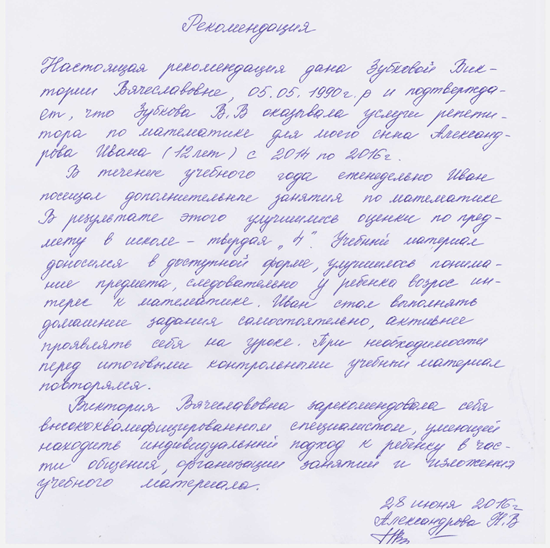 Рекомендация
Настоящая рекомендация дана Зубковой Вик-
тории Вячеславовне, 05.05.1990г.р и подтвержда-
ет, что Зубкова В.В оказывала услуги репети-
тора по математике для моего сына Александ-
рова Ивана (12лет) с 2014 по 2016г.
В течение учебного года еженедельно Иван
посещал дополнительные занятия по математике
В результате этого улучшились оценки по пред-
мету в школе – твердая „4". Учебный материал
доносился в доступной форме, улучшилось понима-
ние предмета, следовательно у ребенка возрос ин-
терес к математике. Иван стал выполнять
домашние задания самостоятельно, активнее
проявлять себя на уроке. При необходимости
перед итоговыми контрольными учебный материал
повторялся.
Виктория Вячеславовна зарекомендовала себя
высококвалифицированным специалистом, умеющей
находить индивидуальный подход к ребенку в час-
ти общения, организации занятий и изложения
учебного материала.
28 июня 2016г
Александрова Н.В